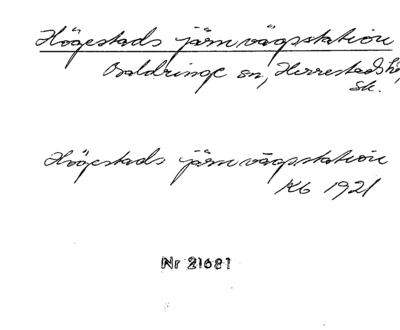 Högestads järnvägsstation
Baldringe sn, Herrestads hd,
Sk.
Högestads järnvägsstation
Kb 1921
Nr 21681